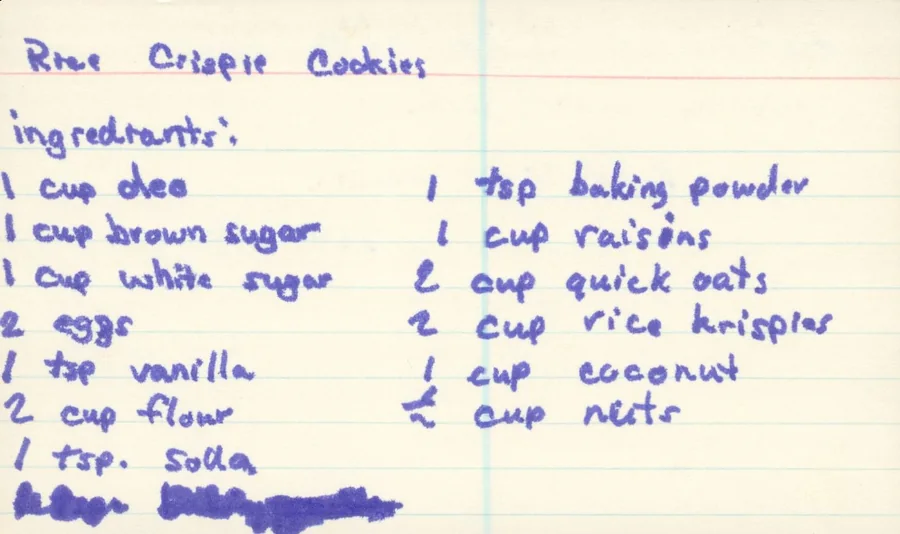 Rice Crispie Cookies
ingrediants:
1 cup oleo
1 cup brown sugar
1 cup white sugar
2 eggs
1 tsp vanilla
2 cup flour
1 tsp. soda
1 tsp baking powder
1 cup raisins
2 cup quick oats
2 cup rice krispies
1 cup coconut
1/2 cup nuts